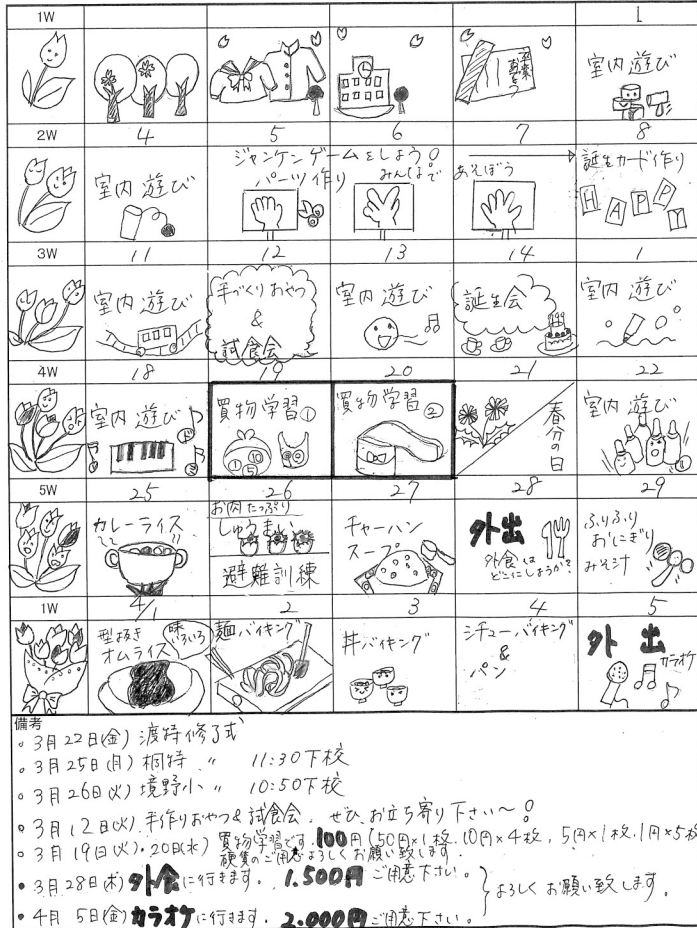 1W 1
卒業
おめでとう
室内遊び
2W 4 5 6 7 8
室内遊び
ジャンケンゲームをしよう!
パーツ作り
みんなで
あそぼう
誕生カード作り
HAPPY
3W 11 12 13 14 1
室内遊び
手づくりおやつ
&
試食会
室内遊び
誕生会
室内遊び
4W 18 19 20 21 22
室内遊び
買物学習①
10
5
買物学習②
春分の日
室内遊び
5W 25 26 27 28 29
カレーライス
お肉たっぷり
しゅうまい
避難訓練
チャーハン
スープ
外出
外食は
どこにしようか?
ふりふり
おにぎり
みそ汁
1W 4/1 2 3 4 5
型抜き
オムライス
味いろいろ
麺バイキング
丼バイキング
シチューバイキング
&
パン
外出
カラオケ
備考
。3月22日(金) 渡特修了式
。3月25日(月) 桐特 〃 11:30下校
。3月26日(火) 境野小 〃 10:50下校
。3月12日(火) 手作りおやつ&試食会. ぜひ、お立ち寄り下さい〜!
。3月19日(火)・20日(水) 買物学習です. 100円(50円×1枚.10円×4枚, 5円×1枚.1円×5枚
硬貨のご用意よろしくお願い致します.
・3月28日(木) 外食に行きます. 1.500円ご用意下さい。
よろしくお願い致します。
・4月5日(金) カラオケに行きます. 2.000円ご用意下さい。